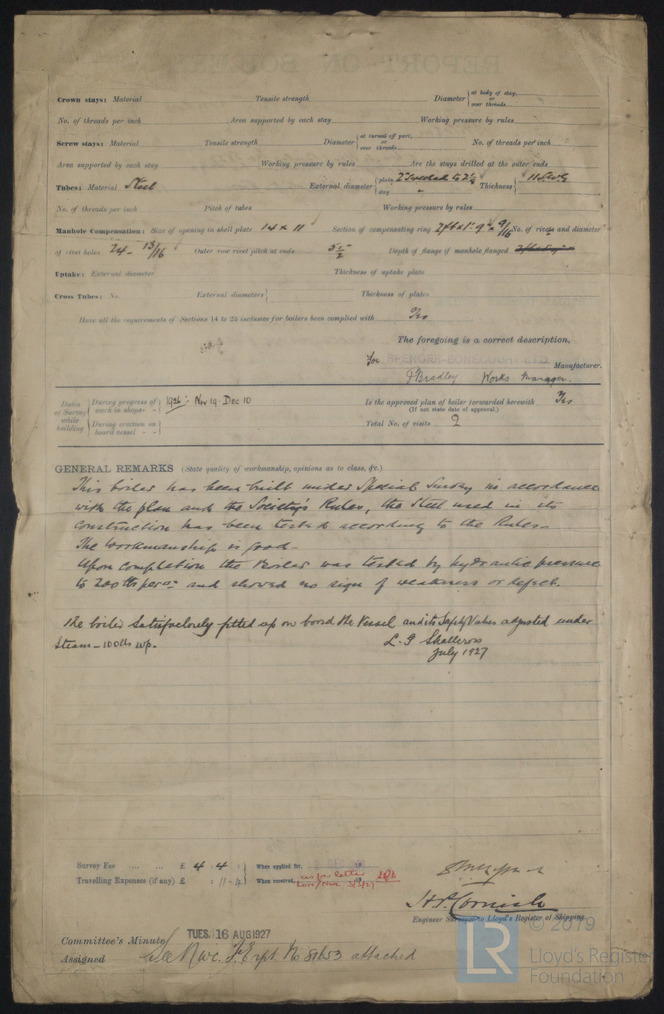 Crown stays: Material Tensile strength Diameter at body of stay, or over threads
No. of threads per inch Area supported by each stay Working pressure by rules
Screw stays: Material Tensile strength Diameter at turned off part, or over threads No. of threads per inch
Area supported by each stay Working pressure by rules Are the stays drilled at the outer ends
Tubes: Material Steel External diameter plain stay Thickness
No. of threads per inch Pitch of tubes Working pressure by rules
Manhole Compensation: Size of opening in shell plate 14 x 11 Section of compensating ring No. of rivets and diameter
of rivet holes 24 - 13/16 Outer row rivet pitch at ends Depth of flange if manhole flanged
Uptake: External diameter Thickness of uptake plate
Cross Tubes: No. External diameters Thickness of plates
Have all the requirements of Sections 14 to 22 inclusive for boilers been complied with Yes
The foregoing is a correct description,
for SPENCER-BONECOURT LTD Manufacturer.
J Bradley Works Manager.
Dates of Survey while building
During progress of work in shops - - 1926: Nov 19. Dec 10
During erection on board vessel - -
Is the approved plan of boiler forwarded herewith Yes
(If not state date of approval.)
Total No. of visits 2
GENERAL REMARKS (State quality of workmanship, opinions as to class, &c.)
This boiler has been built under Special Survey in accordance
with the plan and the Society's Rules, the Steel used in its
construction has been tested according to the Rules.
The workmanship is good.
Upon completion the Boiler was tested by hydraulic pressure
to 200 lbs per □" and showed no sign of weakness or defect.
The boiler satisfactorily fitted up on board the Vessel and its Safety Valves adjusted under
Steam - 100 lbs wp.
L. G. Shallcross
July 1927
Survey Fee ... ... £ 4 : 4 : When applied for,
Travelling Expenses (if any) £ : 11 - 4 When received, as per letter
H. P. Cornish
Engineer Surveyor to Lloyd's Register of Shipping.
Committee's Minute TUES. 16 AUG 1927
Assigned See Nwc. F.E. rpt No 81653 attached
© 2019
LR Lloyd's Register
Foundation